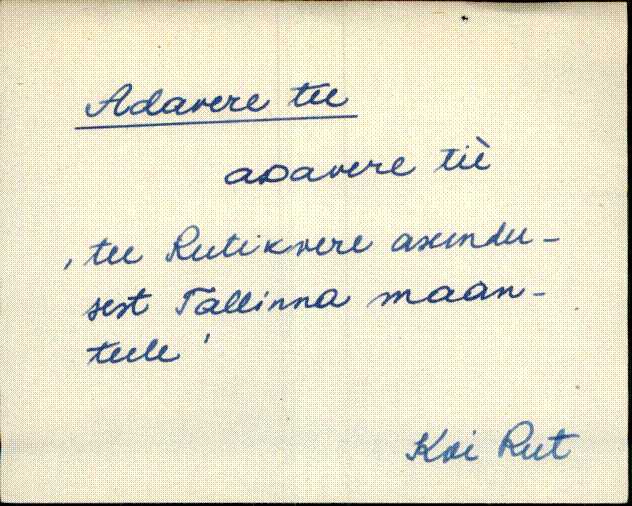 Adavere tee
aᴅavere tiè
, tee Rutikvere asundu-
sest Tallinna maan-
teele '
Koi Rut